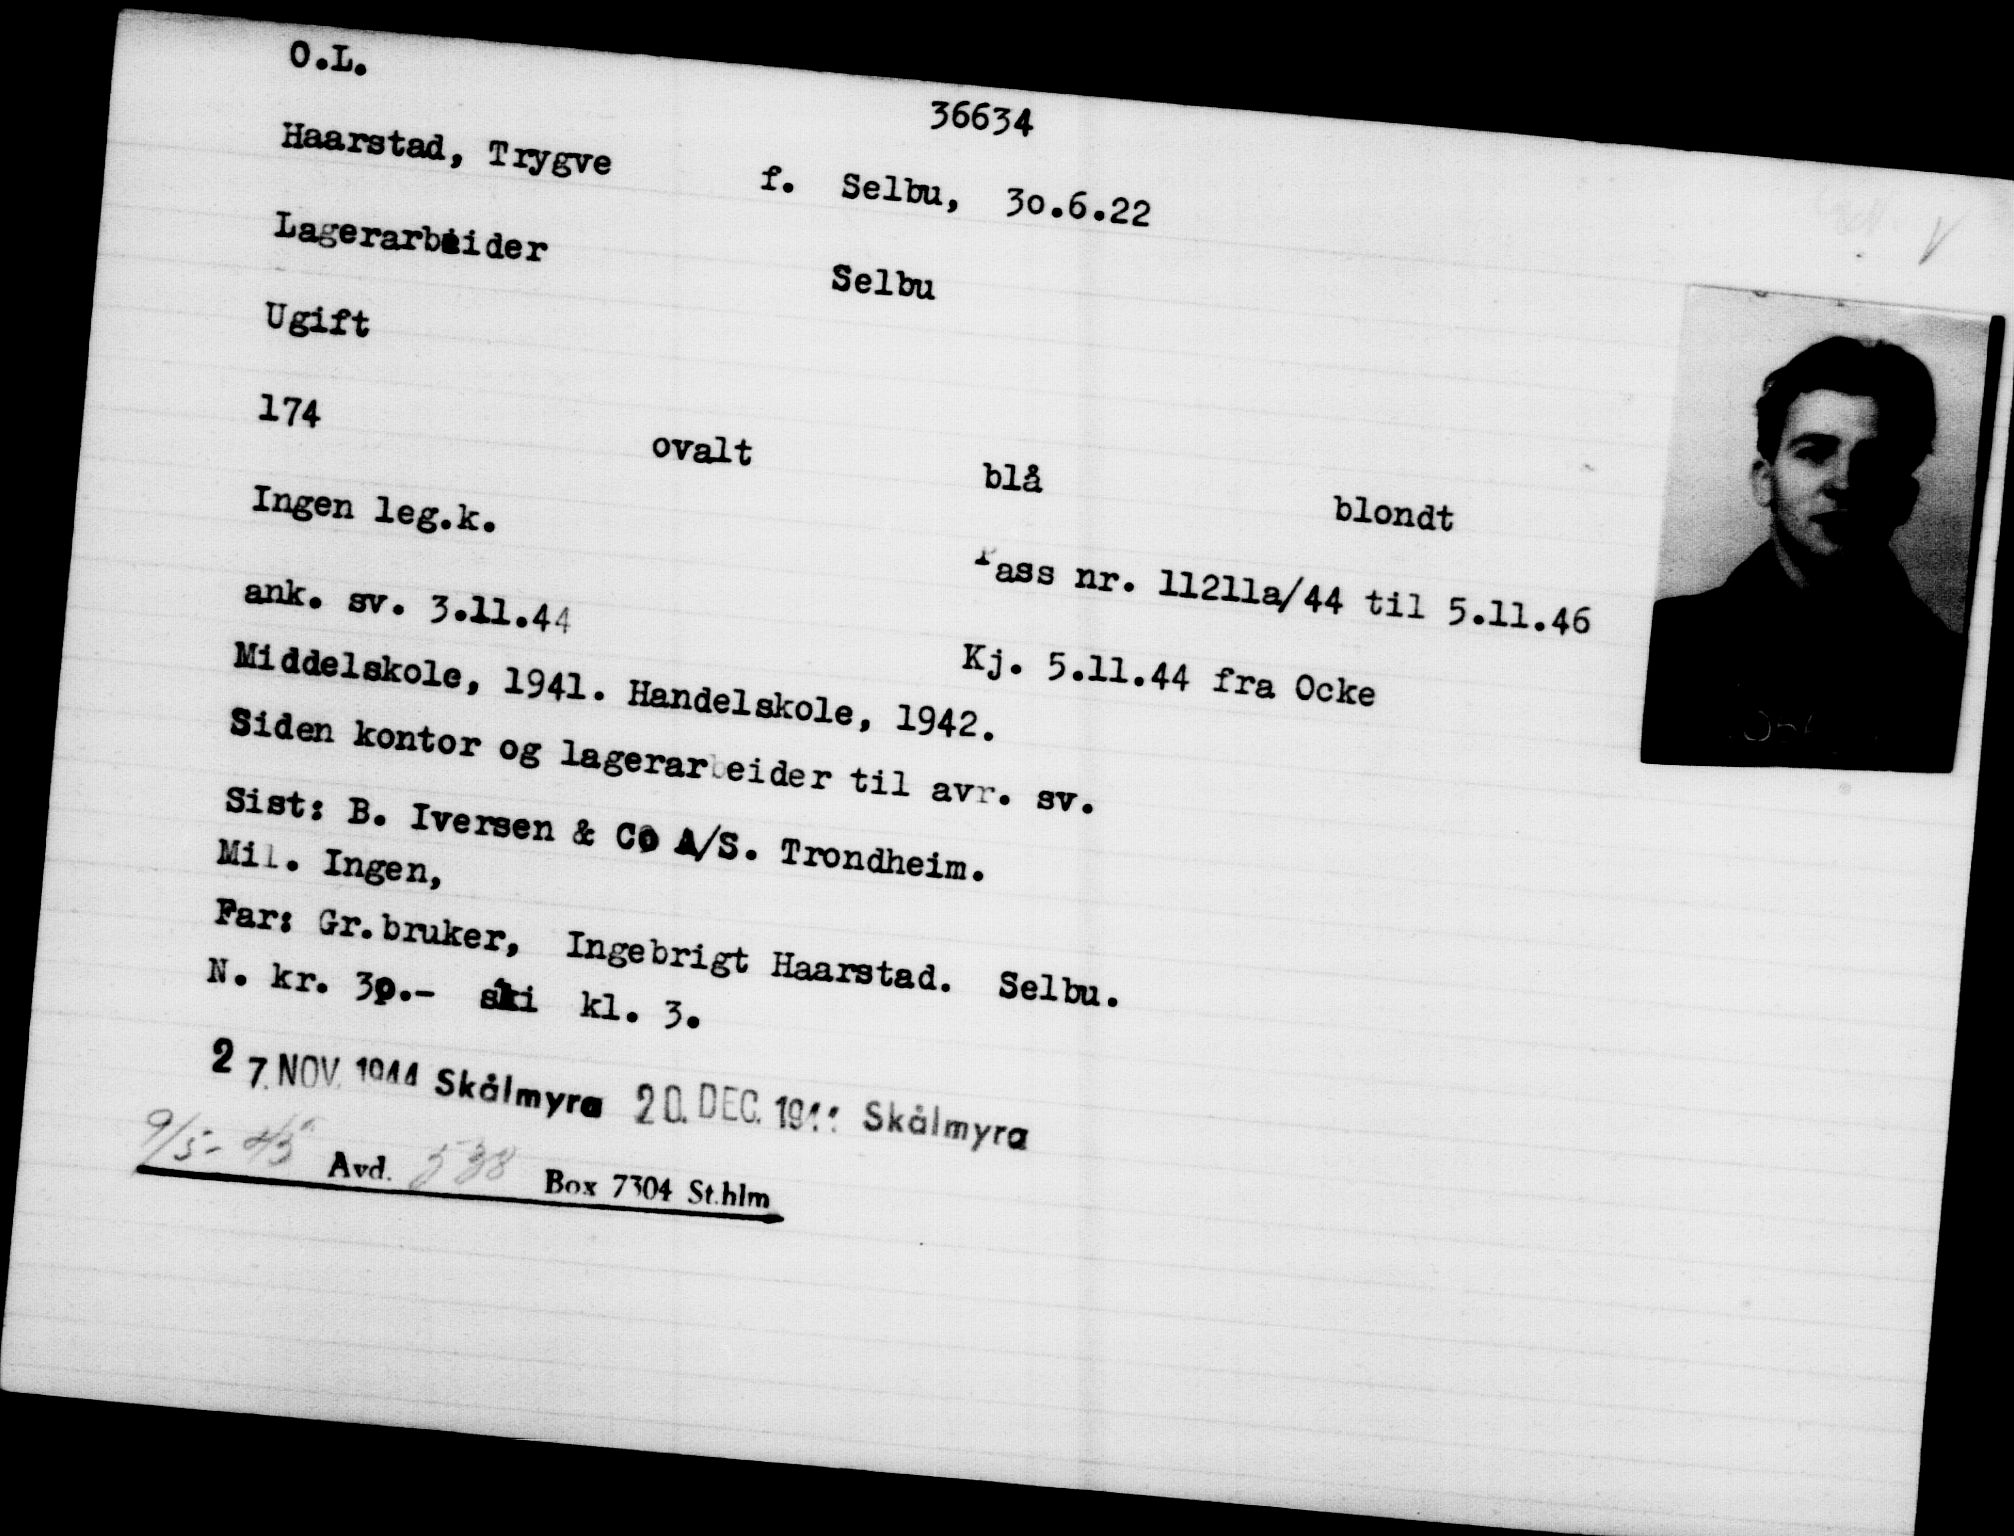 O.L.
36634
Haarstad, Trygve f. Selbu, 30.6.22
Lagerarbeider Selbu
Ugift
174 ovalt blå blondt
Ingen leg.k. Pass nr. 11211a/44 til 5.11.46
ank. sv. 3.11.44 Kj. 5.11.44 fra Ocke
Middelskole, 1941. Handelskole, 1942.
Siden kontor og lagerarbeider til avr. sv.
Sist: B. Iversen & Co A/S. Trondheim.
Mil. Ingen,
Far: Gr.bruker, Ingebrigt Haarstad. Selbu.
N. kr. 30.- ski kl. 3.
27. NOV. 1944 Skålmyra 20. DEC. 1944 Skålmyra
9/5-45 Avd. 538 Box 7304 St.hlm